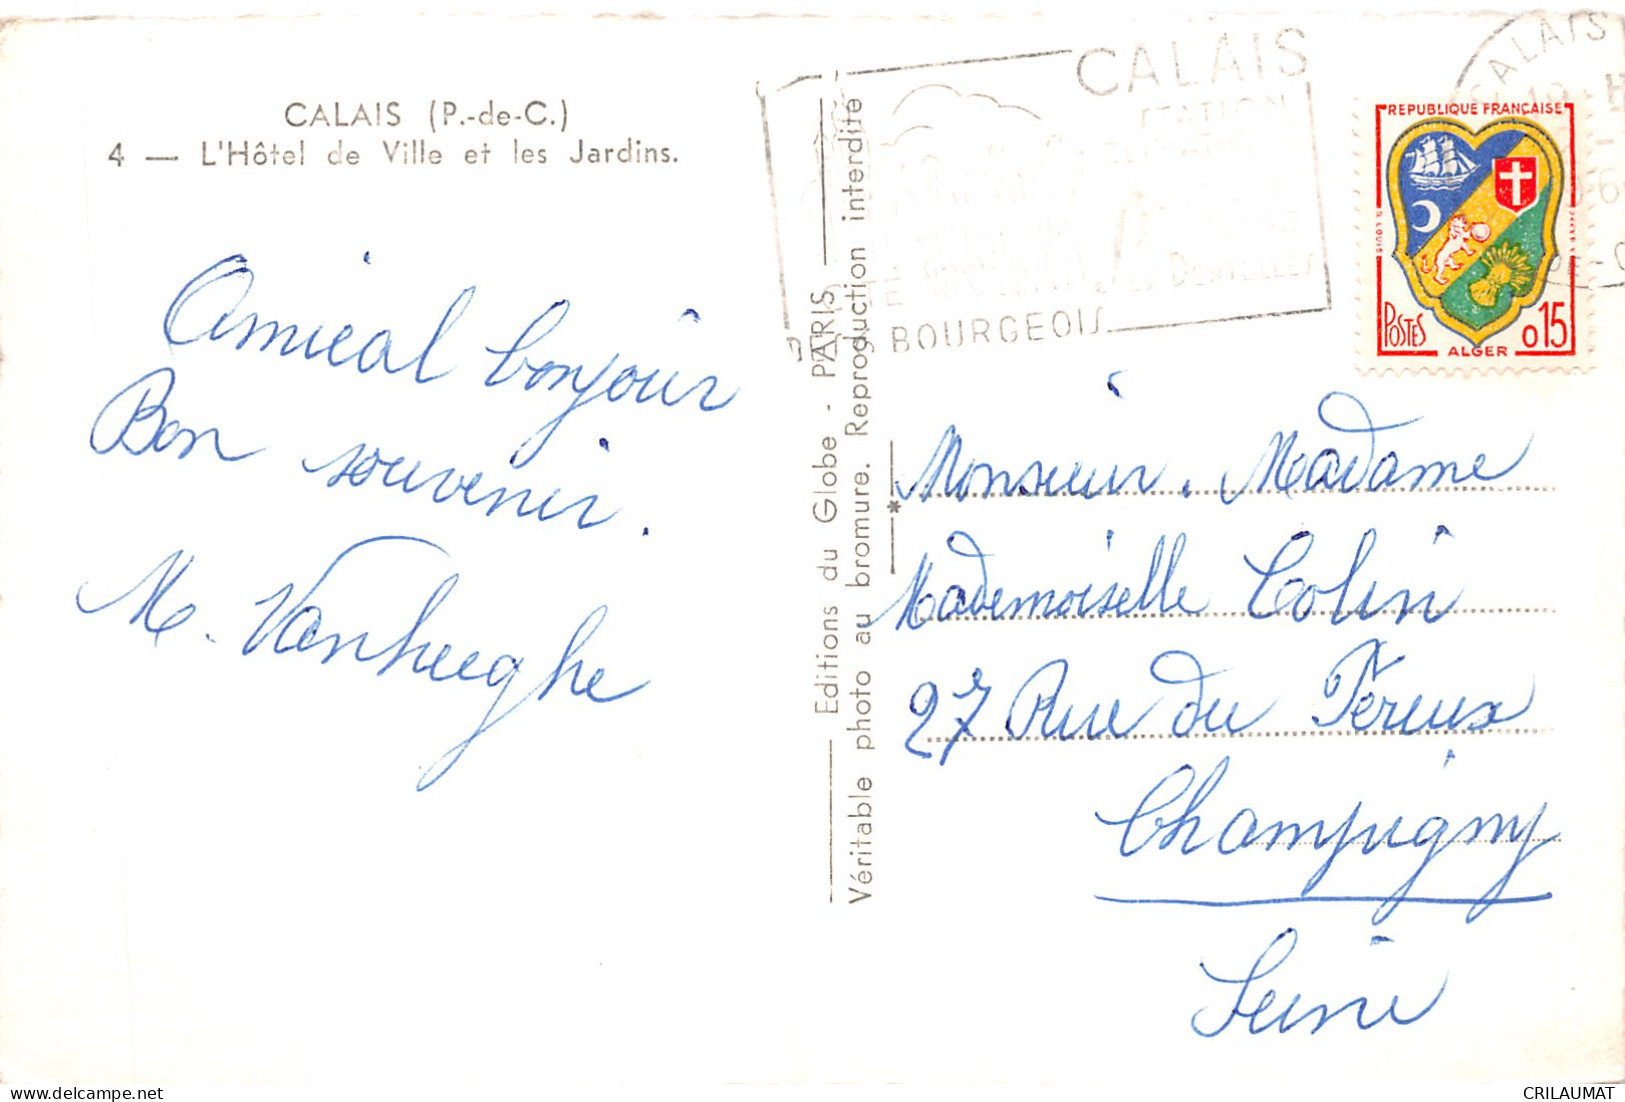 CALAIS (P.-de-C.)
4 — L'Hôtel de Ville et les Jardins.
Amical bonjour
Bon souvenir.
M. Vanheeghe
Editions du Globe - PARIS
Véritable photo au bromure. Reproduction interdite
CALAIS
STATION
DENTELLES
BOURGEOIS
CALAIS
REPUBLIQUE FRANÇAISE
POSTES
0,15
ALGER
Monsieur. Madame
Mademoiselle Colin
27 Rue du Péreux
Champigny
Seine
CRILAUMAT